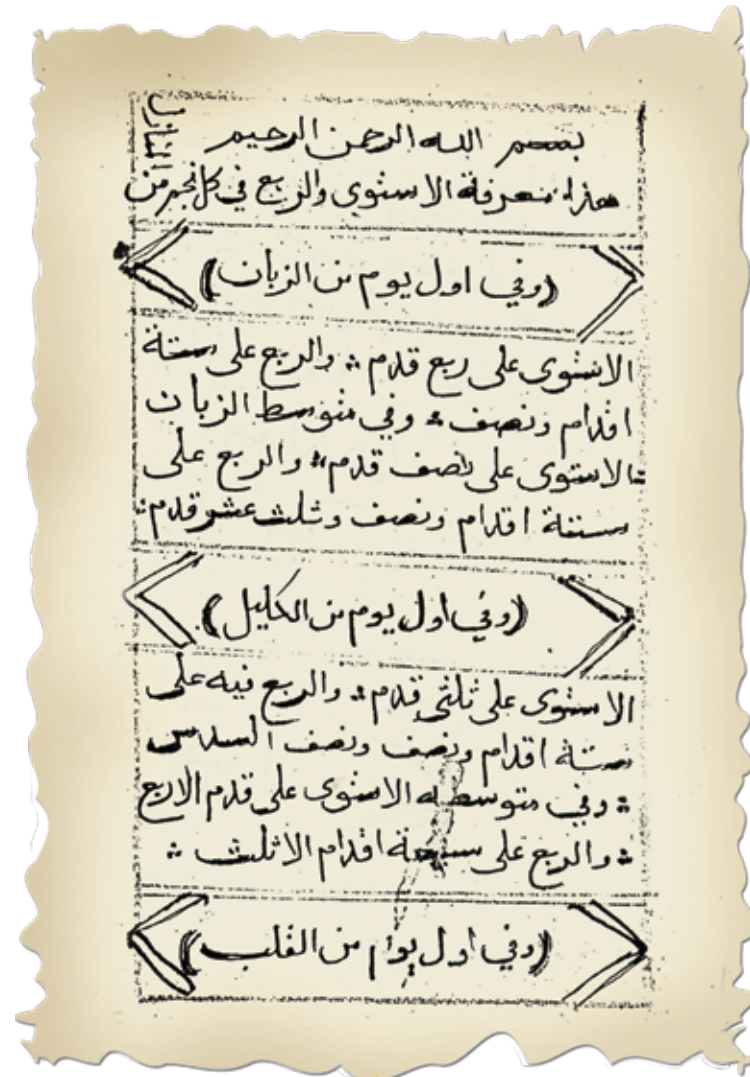 بسم الله الرحمن الرحيم
هذا معرفة الاستوى والربع في كل نجم من
المنازل
(وفي اول يوم من الزبان)
الاستوى على ربع قدم ؞ والربع على ستة
اقدام ونصف ؞ وفي متوسط الزبان
الاستوى على نصف قدم ؞ والربع على
ستة اقدام ونصف وثلث عشر قدم ؞
(وفي اول يوم من الكليل)
الاستوى على ثلثي قدم ؞ والربع فيه على
ستة اقدام ونصف ونصف السدس
؞ وفي متوسطه الاستوى على قدم الاربع
؞ والربع على سبعة اقدام الاثلث ؞
(وفي اول يوم من القلب)